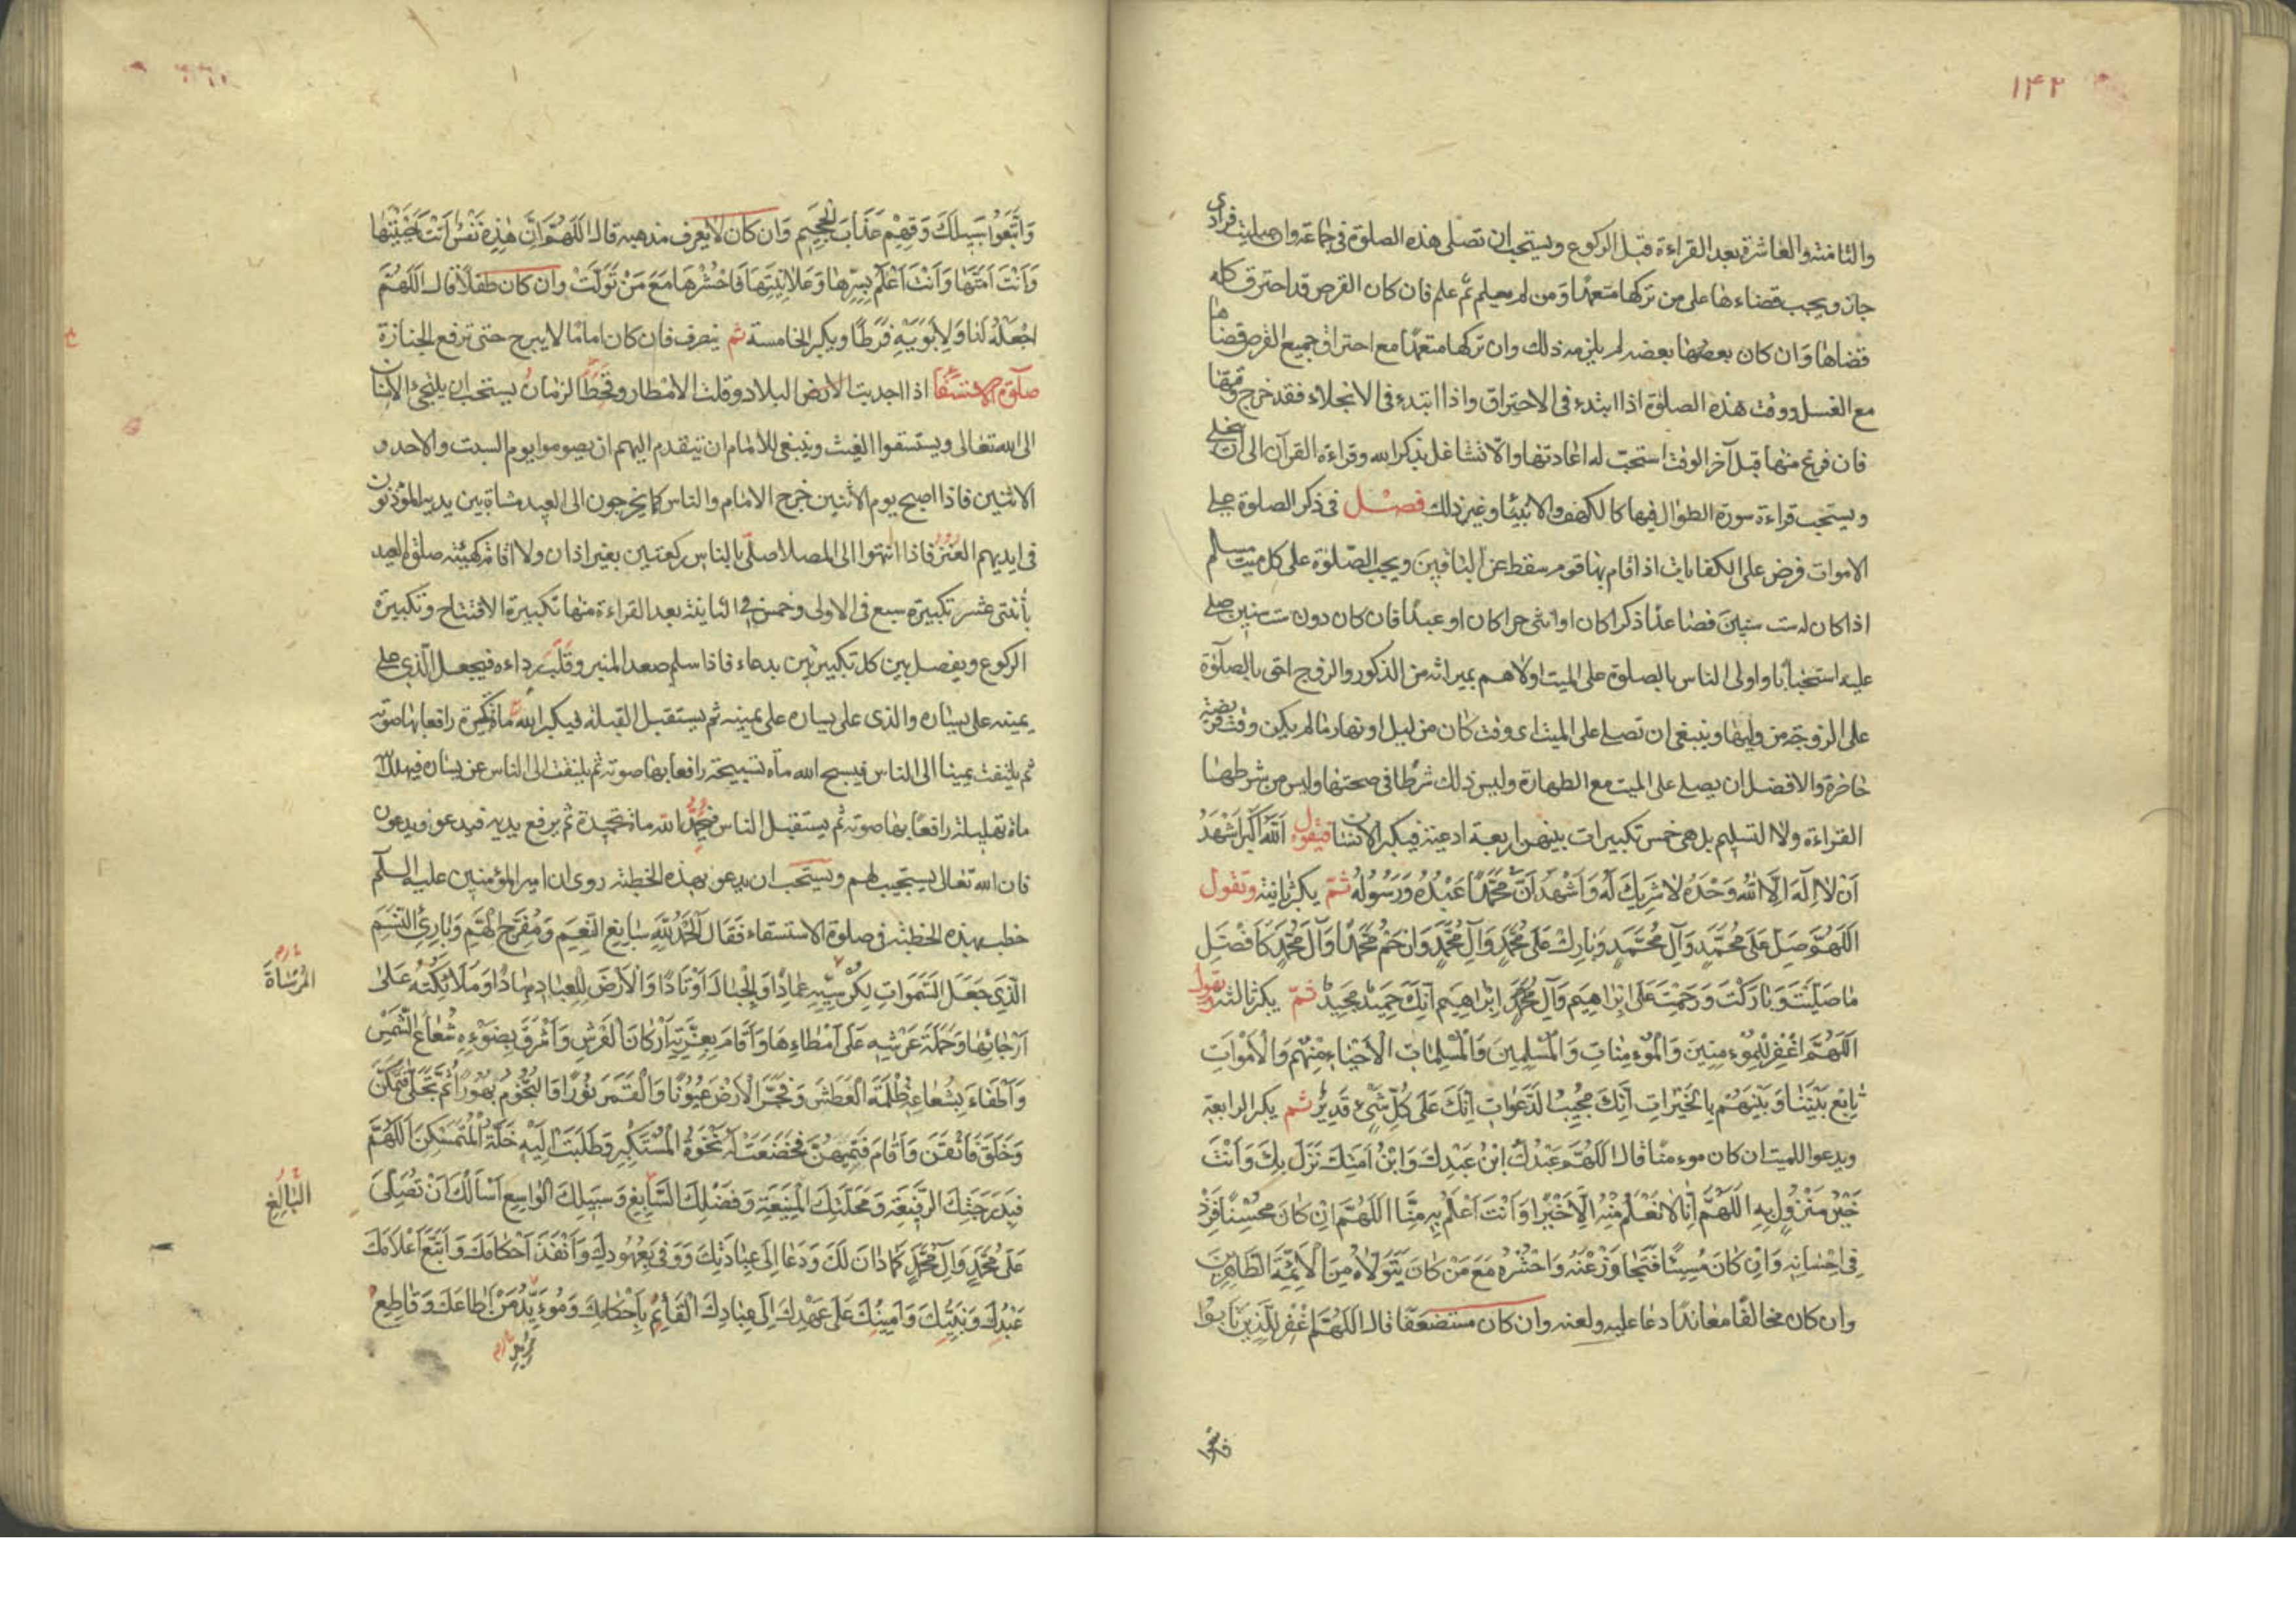 ١٤٢
والثامنة والعاشرة بعد القراءة قبل الركوع ويستحب ان تصلى هذه الصلوة فى جماعة وان صليت فرادى
جاز ويجب قضاءها على من تركها متعمدا ومن لم يعلم ثم علم فان كان القرص قد احترق كله
قضاها وان كان بعضها بعضه لم يلزمه ذلك وان تركها متعمدا مع احتراق جميع القرص قضاها
مع الغسل ووقت هذه الصلوة اذا ابتدء فى الاحتراق واذا ابتدء فى الانجلاء فقد خرج وقتها
فان فرغ منها قبل آخر الوقت استحب له اعادتها والا تشاغل بذكر الله وقراءة القرآن الى ان ينجلى
ويستحب قراءة سورة الطوال فيها كالكهف والانبياء وغير ذلك فصل فى ذكر الصلوة على
الاموات فرض على الكفايات اذا قام بها قوم سقط عن الباقين ويجب الصلوة على كل ميت مسلم
اذا كان له ست سنين فصاعدا ذكرا كان او انثى حرا كان او عبدا فان كان دون ست سنين صلى
عليه استحبابا واولى الناس بالصلوة على الميت اولاهم بميراثه من الذكور والزوج احق بالصلوة
على الزوجة من وليها وينبغى ان تصلى على الميت اى وقت كان من ليل او نهار ما لم يكن وقت فريضة
حاضرة والافضل ان يصلى على الميت مع الطهارة وليس ذلك شرطا فى صحتها وليس من شرطها
القراءة ولا التسليم بل هى خمس تكبيرات بينهن اربعة ادعية فيكبر الانسان فيقول الله اكبر اَشْهَدُ
اَنْ لا اِلهَ اِلَّا اللهُ وَحْدَهُ لا شَرِيكَ لَهُ وَاَشْهَدُ اَنَّ مُحَمَّدًا عَبْدُهُ وَرَسُولُهُ ثمّ يكبر ثانية وتقول
اَللّهُمَّ صَلِّ عَلى مُحَمَّدٍ وَآلِ مُحَمَّدٍ وَبارِكْ عَلى مُحَمَّدٍ وَآلِ مُحَمَّدٍ وَارْحَمْ مُحَمَّدًا وَآلَ مُحَمَّدٍ كَاَفْضَلِ
ما صَلَّيْتَ وَبارَكْتَ وَرَحِمْتَ عَلى اِبْراهِيمَ وَآلِ اِبْراهِيمَ اِنَّكَ حَمِيدٌ مَجِيدٌ ثمّ يكبر ثالثة ويقول
اَللّهُمَّ اغْفِرْ لِلْمُؤْمِنِينَ وَالْمُؤْمِناتِ وَالْمُسْلِمِينَ وَالْمُسْلِماتِ الْاَحْياءِ مِنْهُمْ وَالْاَمْواتِ
تابِعْ بَيْنَنا وَبَيْنَهُمْ بِالْخَيْراتِ اِنَّكَ مُجِيبُ الدَّعَواتِ اِنَّكَ عَلى كُلِّ شَىْءٍ قَدِيرٌ ثم يكبر الرابعة
ويدعو للميت ان كان مؤمنا قال اَللّهُمَّ عَبْدُكَ ابْنُ عَبْدِكَ وَابْنُ اَمَتِكَ نَزَلَ بِكَ وَاَنْتَ
خَيْرُ مَنْزُولٍ بِهِ اَللّهُمَّ اِنَّا لا نَعْلَمُ مِنْهُ اِلَّا خَيْرًا وَاَنْتَ اَعْلَمُ بِهِ مِنَّا اَللّهُمَّ اِنْ كانَ مُحْسِنًا فَزِدْ
فِى اِحْسانِهِ وَاِنْ كانَ مُسِيئًا فَتَجاوَزْ عَنْهُ وَاحْشُرْهُ مَعَ مَنْ كانَ يَتَوَلَّاهُ مِنَ الْاَئِمَّةِ الطَّاهِرِينَ
وان كان مخالفا معاندا دعا عليه ولعنه وان كان مستضعفا قال اَللّهُمَّ اغْفِرْ لِلَّذِينَ تابُوا
وَاتَّبَعُوا سَبِيلَكَ وَقِهِمْ عَذابَ الْجَحِيمِ وان كان لا يعرف مذهبه قال اَللّهُمَّ اِنَّ هذِهِ نَفْسٌ اَنْتَ اَحْيَيْتَها
وَاَنْتَ اَمَتَّها وَاَنْتَ اَعْلَمُ بِسِرِّها وَعَلانِيَتِها فَاحْشُرْها مَعَ مَنْ تَوَلَّتْ وان كان طفلا قال اَللّهُمَّ
اجْعَلْهُ لَنا وَلِاَبَوَيْهِ فَرَطًا ويكبر الخامسة ثم ينصرف فان كان اماما لا يبرح حتى ترفع الجنازة
صلوة الاستسقاء اذا اجدبت الارض البلاد وقلت الامطار وقحط الزمان يستحب ان يلتجئ الانسان
الى الله تعالى ويستسقوا الغيث وينبغى للامام ان يتقدم اليهم ان يصوموا يوم السبت والاحد و
الاثنين فاذا اصبح يوم الاثنين خرج الامام والناس كما يخرجون الى العيد مشاة بين يديه المؤذنون
فى ايديهم العنز فاذا انتهوا الى المصلا صلى بالناس ركعتين بغير اذان ولا اقامة كهيئة صلوة العيد
بأثنتى عشر تكبيرة سبع فى الاولى وخمس فى الثانية بعد القراءة منها تكبيرة الافتتاح وتكبيرة
الركوع ويفصل بين كل تكبيرتين بدعاء فاذا سلم صعد المنبر وقلب رداءه فيجعل الذى على
يمينه على يساره والذى على يساره على يمينه ثم يستقبل القبلة فيكبر الله مائة تكبيرة رافعا بها صوته
ثم يلتفت يمينا الى الناس فيسبح الله مأه تسبيحة رافعا بها صوته ثم يلتفت الى الناس عن يساره فيهلل الله
مائة تهليلة رافعا بها صوته ثم يستقبل الناس فيحمد الله مائة تحميدة ثم يرفع يديه فيدعو ويدعون
فان الله تعالى يستجيب لهم ويستحب ان يدعو بهذه الخطبة روى ان امير المؤمنين عليه السلم
خطب بهذه الخطبة فى صلوة الاستسقاء فَقالَ اَلْحَمْدُ لِلّهِ سابِغِ النِّعَمِ وَمُفَرِّجِ الْهَمِّ وَبارِئِ النَّسَمِ
الَّذِى جَعَلَ السَّمواتِ لِكُرْسِيِّهِ عِمادًا وَالْجِبالَ اَوْتادًا وَالْاَرْضَ لِلْعِبادِ مِهادًا وَمَلائِكَتَهُ عَلى
المُرْساة
اَرْجائِها وَحَمَلَةَ عَرْشِهِ عَلى اَمْطاءِها وَاَقامَ بِعِزَّتِهِ اَرْكانَ الْعَرْشِ وَاَشْرَقَ بِضَوْءِهِ شُعاعَ الشَّمْسِ
وَاَطْفَاءَ بِشُعاعِهِ ظُلْمَةَ الْغَطَشِ وَفَجَّرَ الْاَرْضَ عُيُونًا وَالْقَمَرَ نُورًا وَالنُّجُومَ بُهُورًا ثُمَّ تَجَلَّى فَتَمَكَّنَ
وَخَلَقَ فَاَتْقَنَ وَاَقامَ فَتَهَيْمَنَ فَخَضَعَتْ لَهُ نَخْوَةُ الْمُسْتَكْبِرِ وَطَلَبَتْ اِلَيْهِ خَلَّةُ الْمُتَمَسْكِنِ اَللّهُمَّ
فَبِدَرَجَتِكَ الرَّفِيعَةِ وَمَحَلَّتِكَ الْمَنِيعَةِ وَفَضْلِكَ السَّابِغِ وَسَبِيلِكَ الْواسِعِ اَسْاَلُكَ اَنْ تُصَلِّىَ
البالِغ
عَلى مُحَمَّدٍ وَآلِ مُحَمَّدٍ كَما دانَ لَكَ وَدَعا اِلى عِبادَتِكَ وَوَفى بِعُهُودِكَ وَاَنْفَذَ اَحْكامَكَ وَاتَّبَعَ اَعْلامَكَ
عَبْدِكَ وَنَبِيِّكَ وَاَمِينِكَ عَلى عَهْدِكَ اِلى عِبادِكَ الْقائِمِ بِاَحْكامِكَ وَمُوءَيِّدِ مَنْ اَطاعَكَ وَقاطِعِ